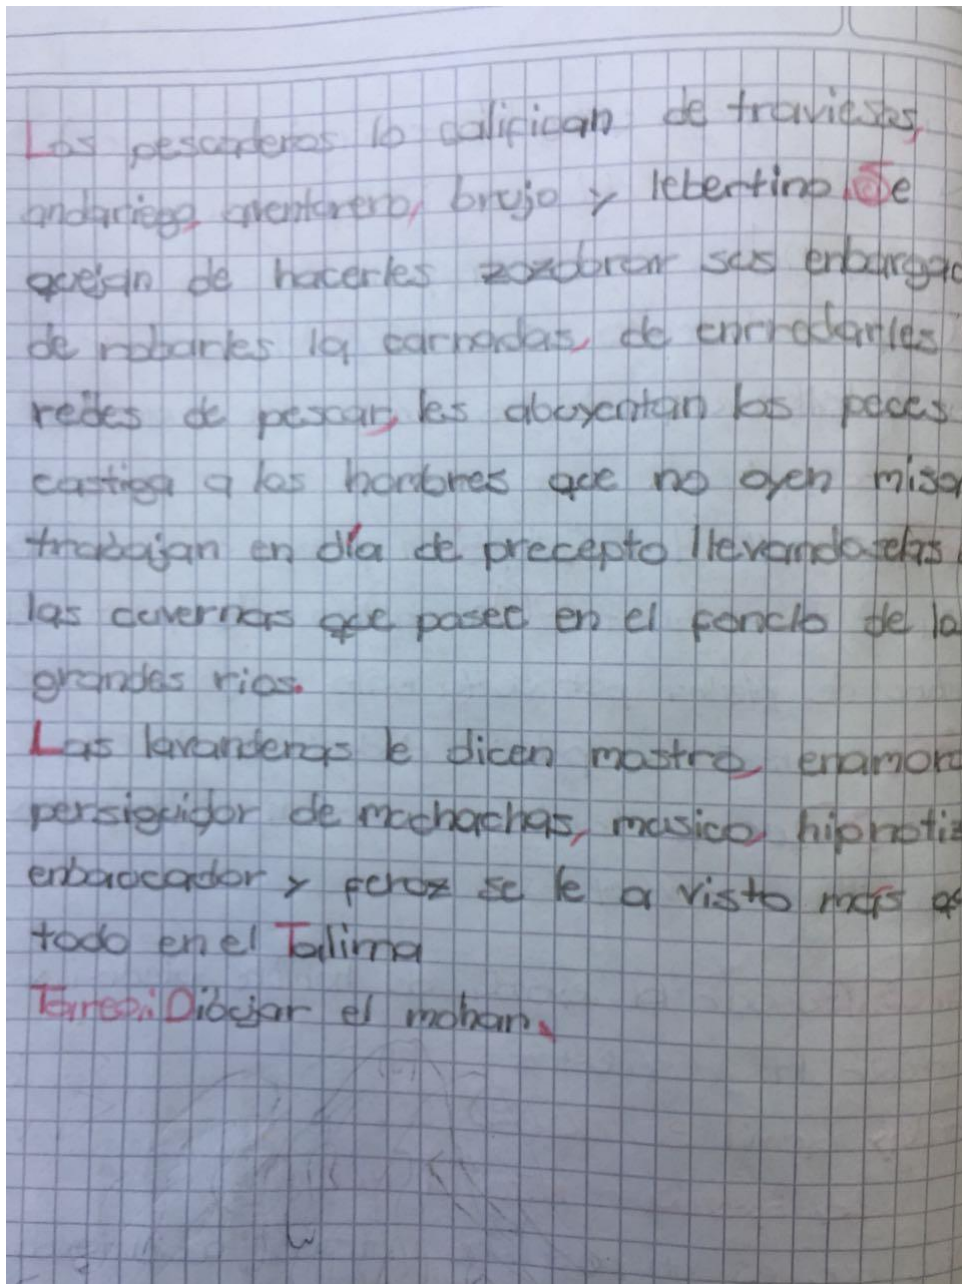 Los pescaderos lo califican de traviesos,
andariego, aventurero, brujo y lebertino. Se
quejan de hacerles zozobrar sus enbargac
de robarles la carnadas, de enrredarles
redes de pescar, les abuyentan los peces
castiga a los hombres que no oyen misa
trabajan en día de precepto llevandoselas
las cavernas que posee en el fondo de la
grandes rios.
Las lavanderas le dicen mostro, enamora
persiguidor de muchachas, musico, hipnotiz
enbaucador y feroz se le a visto más
todo en el Tolima
Tarea: Dibujar el mohan.